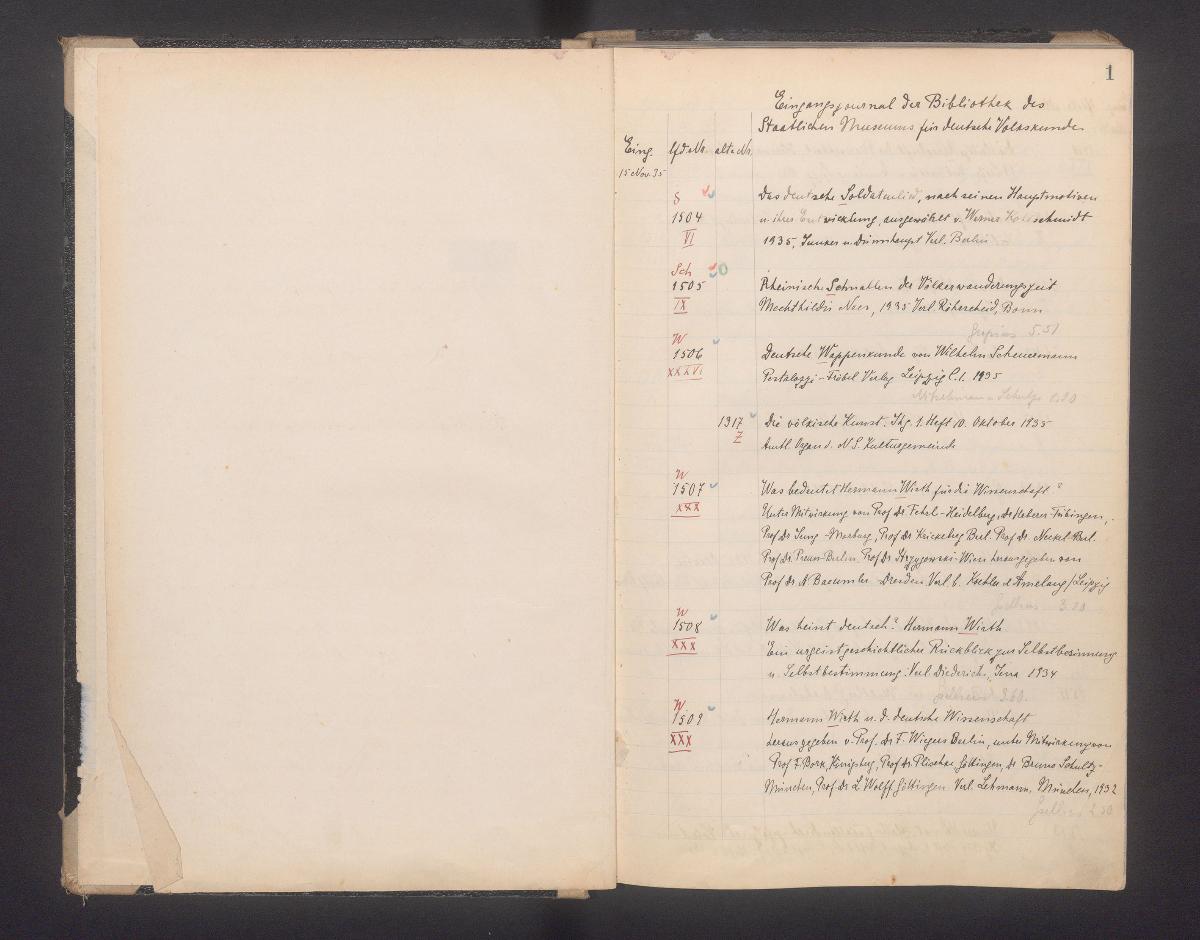 1
Eingangsjournal der Bibliothek des
Staatlichen Museums für deutsche Volkskunde
Eing. lfd. Nr. alte Nr.
15 Nov. 35
S
Das deutsche Soldatenlied, nach seinen Hauptmotiven
1504 u. ihrer Entwicklung, ausgewählt v. Werner Kohlschmidt
VI
1935, Junker u. Dünnhaupt Verl. Berlin
Sch
1505 Rheinische Schnallen der Völkerwanderungszeit
IX Mechthildis Neer, 1935 Verl. Röhrscheid, Bonn
5.51
W
1506 Deutsche Wappenkunde von Wilhelm Scheuermann
XXXVI Pestalozzi-Fröbel Verlag Leipzig C.1. 1935
1.20
1317 Die völkische Kunst. Jhg. 1. Heft 10. Oktober 1935
Z Amtl. Organ d. N.S. Kulturgemeinde
W
1507 Was bedeutet Hermann Wirth für die Wissenschaft?
XXX Unter Mitwirkung von Prof. Dr. Fehrl-Heidelberg, Dr. Heberer-Tübingen,
Prof. Dr. Jung-Marburg, Prof. Dr. Krickeberg Berl. Prof. Dr. Neckel-Berl.
Prof. Dr. Preuss-Berlin. Prof. Dr. Strzygowski-Wien herausgegeben von
Prof. Dr. A Baeumler Dresden Verl. b. Koehler & Amelang/Leipzig
W
1508 Was heisst deutsch? Hermann Wirth
XXX Ein urgeistgeschichtlicher Rückblick zur Selbstbesinnung
u. Selbstbestimmung. Verl. Diederichs, Jena 1934
2.60
W.
1509 Hermann Wirth u. d. deutsche Wissenschaft
XXX herausgegeben v. Prof. Dr. F. Wiegers Berlin, unter Mitwirkung von
Prof. F. Bork, Königsberg, Prof. Dr. Plischke Göttingen, Dr. Bruno Schultz-
München, Prof. Dr. L Wolff Göttingen. Verl. Lehmann, München, 1932
2.50